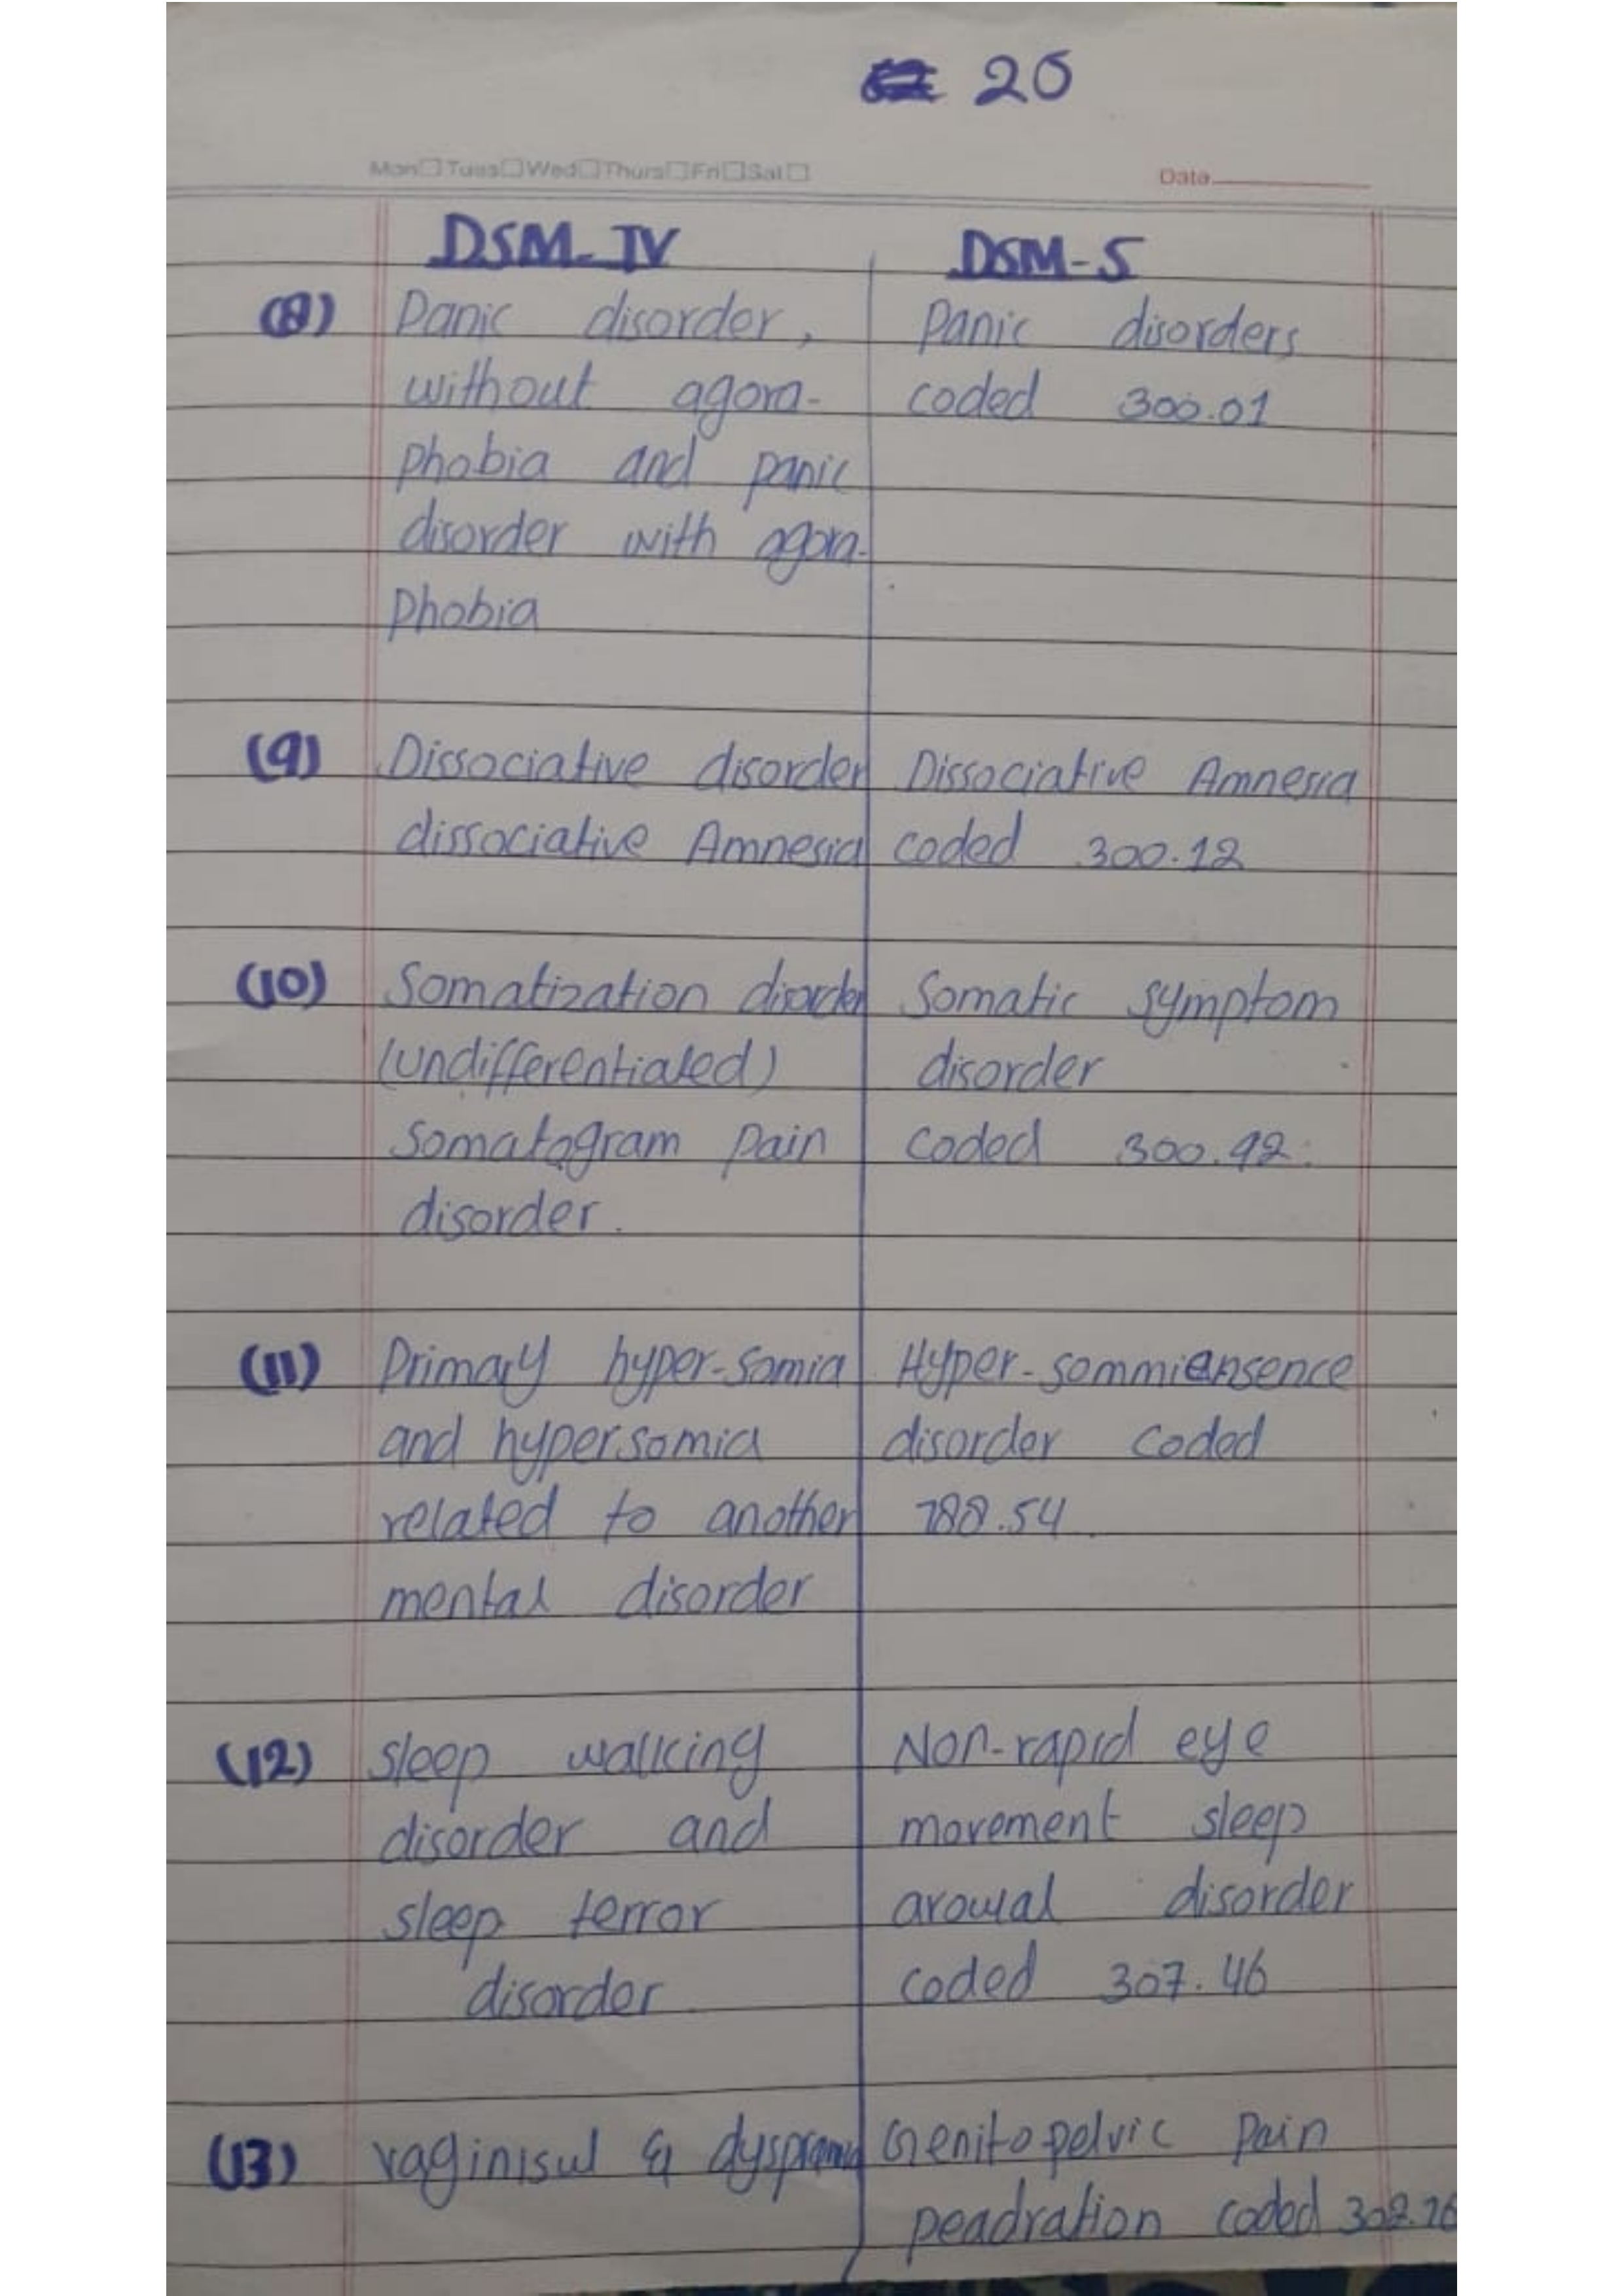 20
Mon Tues Wed Thurs Fri Sat
Date
DSM-IV
DSM-5
(8)
Panic disorder,
without agora-
phobia and panic
disorder with agora-
phobia
Panic disorders
coded 300.01
(9)
Dissociative disorder
dissociative Amnesia
Dissociative Amnesia
coded 300.12
(10)
Somatization disorder
(undifferentiated)
somatogram pain
disorder.
Somatic symptom
disorder
coded 300.92.
(11)
Primary hyper-somia
and hypersomia
related to another
mental disorder
Hyper-sommiensence
disorder coded
788.54.
(12)
sleep walking
disorder and
sleep terror
disorder
Non-rapid eye
movement sleep
arousal disorder
coded 307.46
(13)
vaginisul &
Genitopelvic pain
peadration coded 302.76